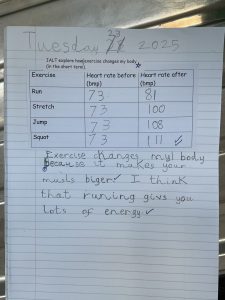 Tuesday 23 2025
IALT explore how exercise changes my body
(in the short term).
Exercise Heart rate before (bmp) Heart rate after (bmp)
Run 73 81
Stretch 73 100
Jump 73 108
Squat 73 111
Exercise changes my body
because it makes your
musls biger I think
that runing givs you
lots of energy